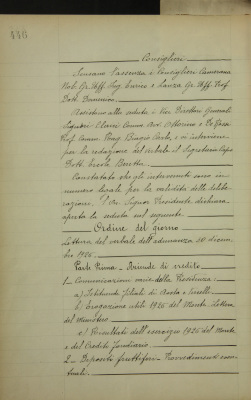 446.
Consiglieri
Scusano l'assenza i Consiglieri Camerana
Nob. Gr. Uff. Ing. Enrico e Lanza Gr. Uff. Prof.
Dott. Domenico.
Assistono alla seduta i Vice Direttori Generali
Signori Comm. Avv. e De
Prof. Comm. Rag. Biagio Carlo, e vi interviene
per la redazione del verbale il Segretario Capo
Dott. Ercole Beretta.
Constatato che gli intervenuti sono in
numero legale per la validità delle delibe-
razioni, l'On. Signor Presidente dichiara
aperta la seduta sul seguente
Ordine del giorno
Lettura del verbale dell'adunanza 30 dicem-
bre 1926.
Parte Prima - Aziende di credito
1 - Comunicazioni varie della Presidenza:
a) Istituende Filiali di Aosta e
b) Erogazione utili 1925 del Monte. Lettera
del Ministero
c) Risultati dell'esercizio 1926 del Monte
e del Credito Fondiario
2 - Depositi fruttiferi - Provvedimenti even-
tuali.